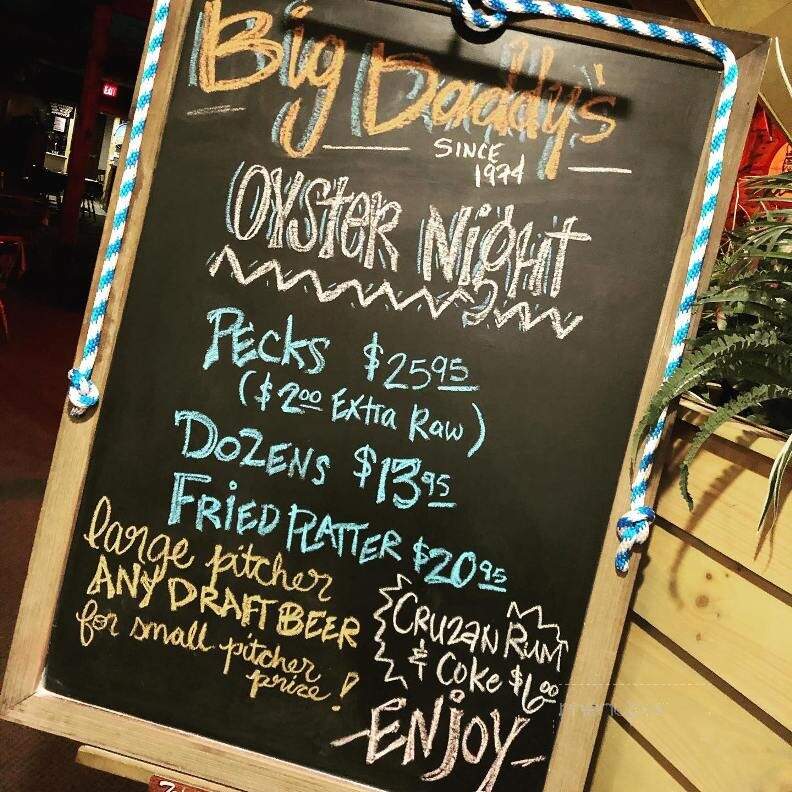 Big Daddy's
SINCE
1974
OYSTER NIGHT
PECKS $25.95
($2.00 Extra Raw)
DOZENS $13.95
FRIED PLATTER $20.95
large pitcher
ANY DRAFT BEER
for small pitcher
prize!
CRUZAN RUM
& Coke $6.00
ENJOY
Exit